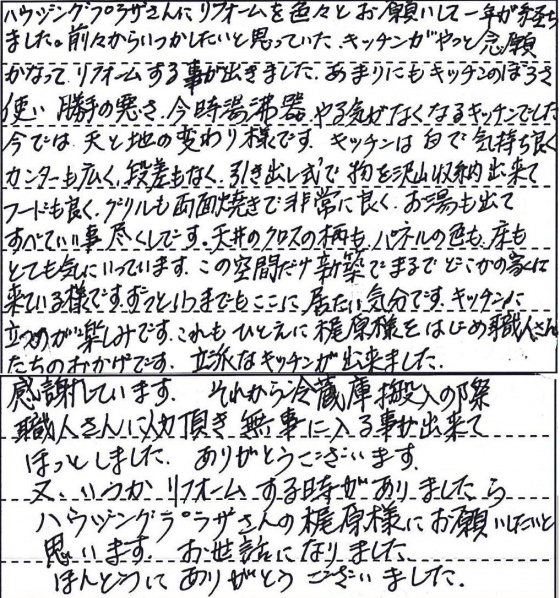 ハウジングプラザさんにリフォームを色々とお願いして一年が経ち
ました。前々からいつかしたいと思っていた、キッチンがやっと念願
かなってリフォームする事が出きました。あまりにもキッチンのぼろさ
使い勝手の悪さ、今時湯沸器。やる気がなくなるキッチンでした
今では天と地の変わり様です。キッチンは白で気持ち良く
カンターも広く、段差もなく、引き出し式で物を沢山収納出来て
フードも良く、グリルも両面焼きで非常に良く、お湯も出て
すべていい事尽くしです。天井のクロスの柄も、パネルの色も、床も
とても気にいっています。この空間だけ新築でまるでどこかの家に
来ている様です。ずっといつまでもここに居たい気分です。キッチンに
立つのが楽しみです。これもひとえに梶原様をはじめ職人さん
たちのおかげです。立派なキッチンが出来ました。
感謝しています。それから冷蔵庫搬入の際
職人さんに頂き無事に入る事が出来て
ほっとしました。ありがとうございます。
又、いつかリフォームする時がありましたら
ハウジングプラザさんの梶原様にお願いしたいと
思います。お世話になりました。
ほんとうにありがとうございました。